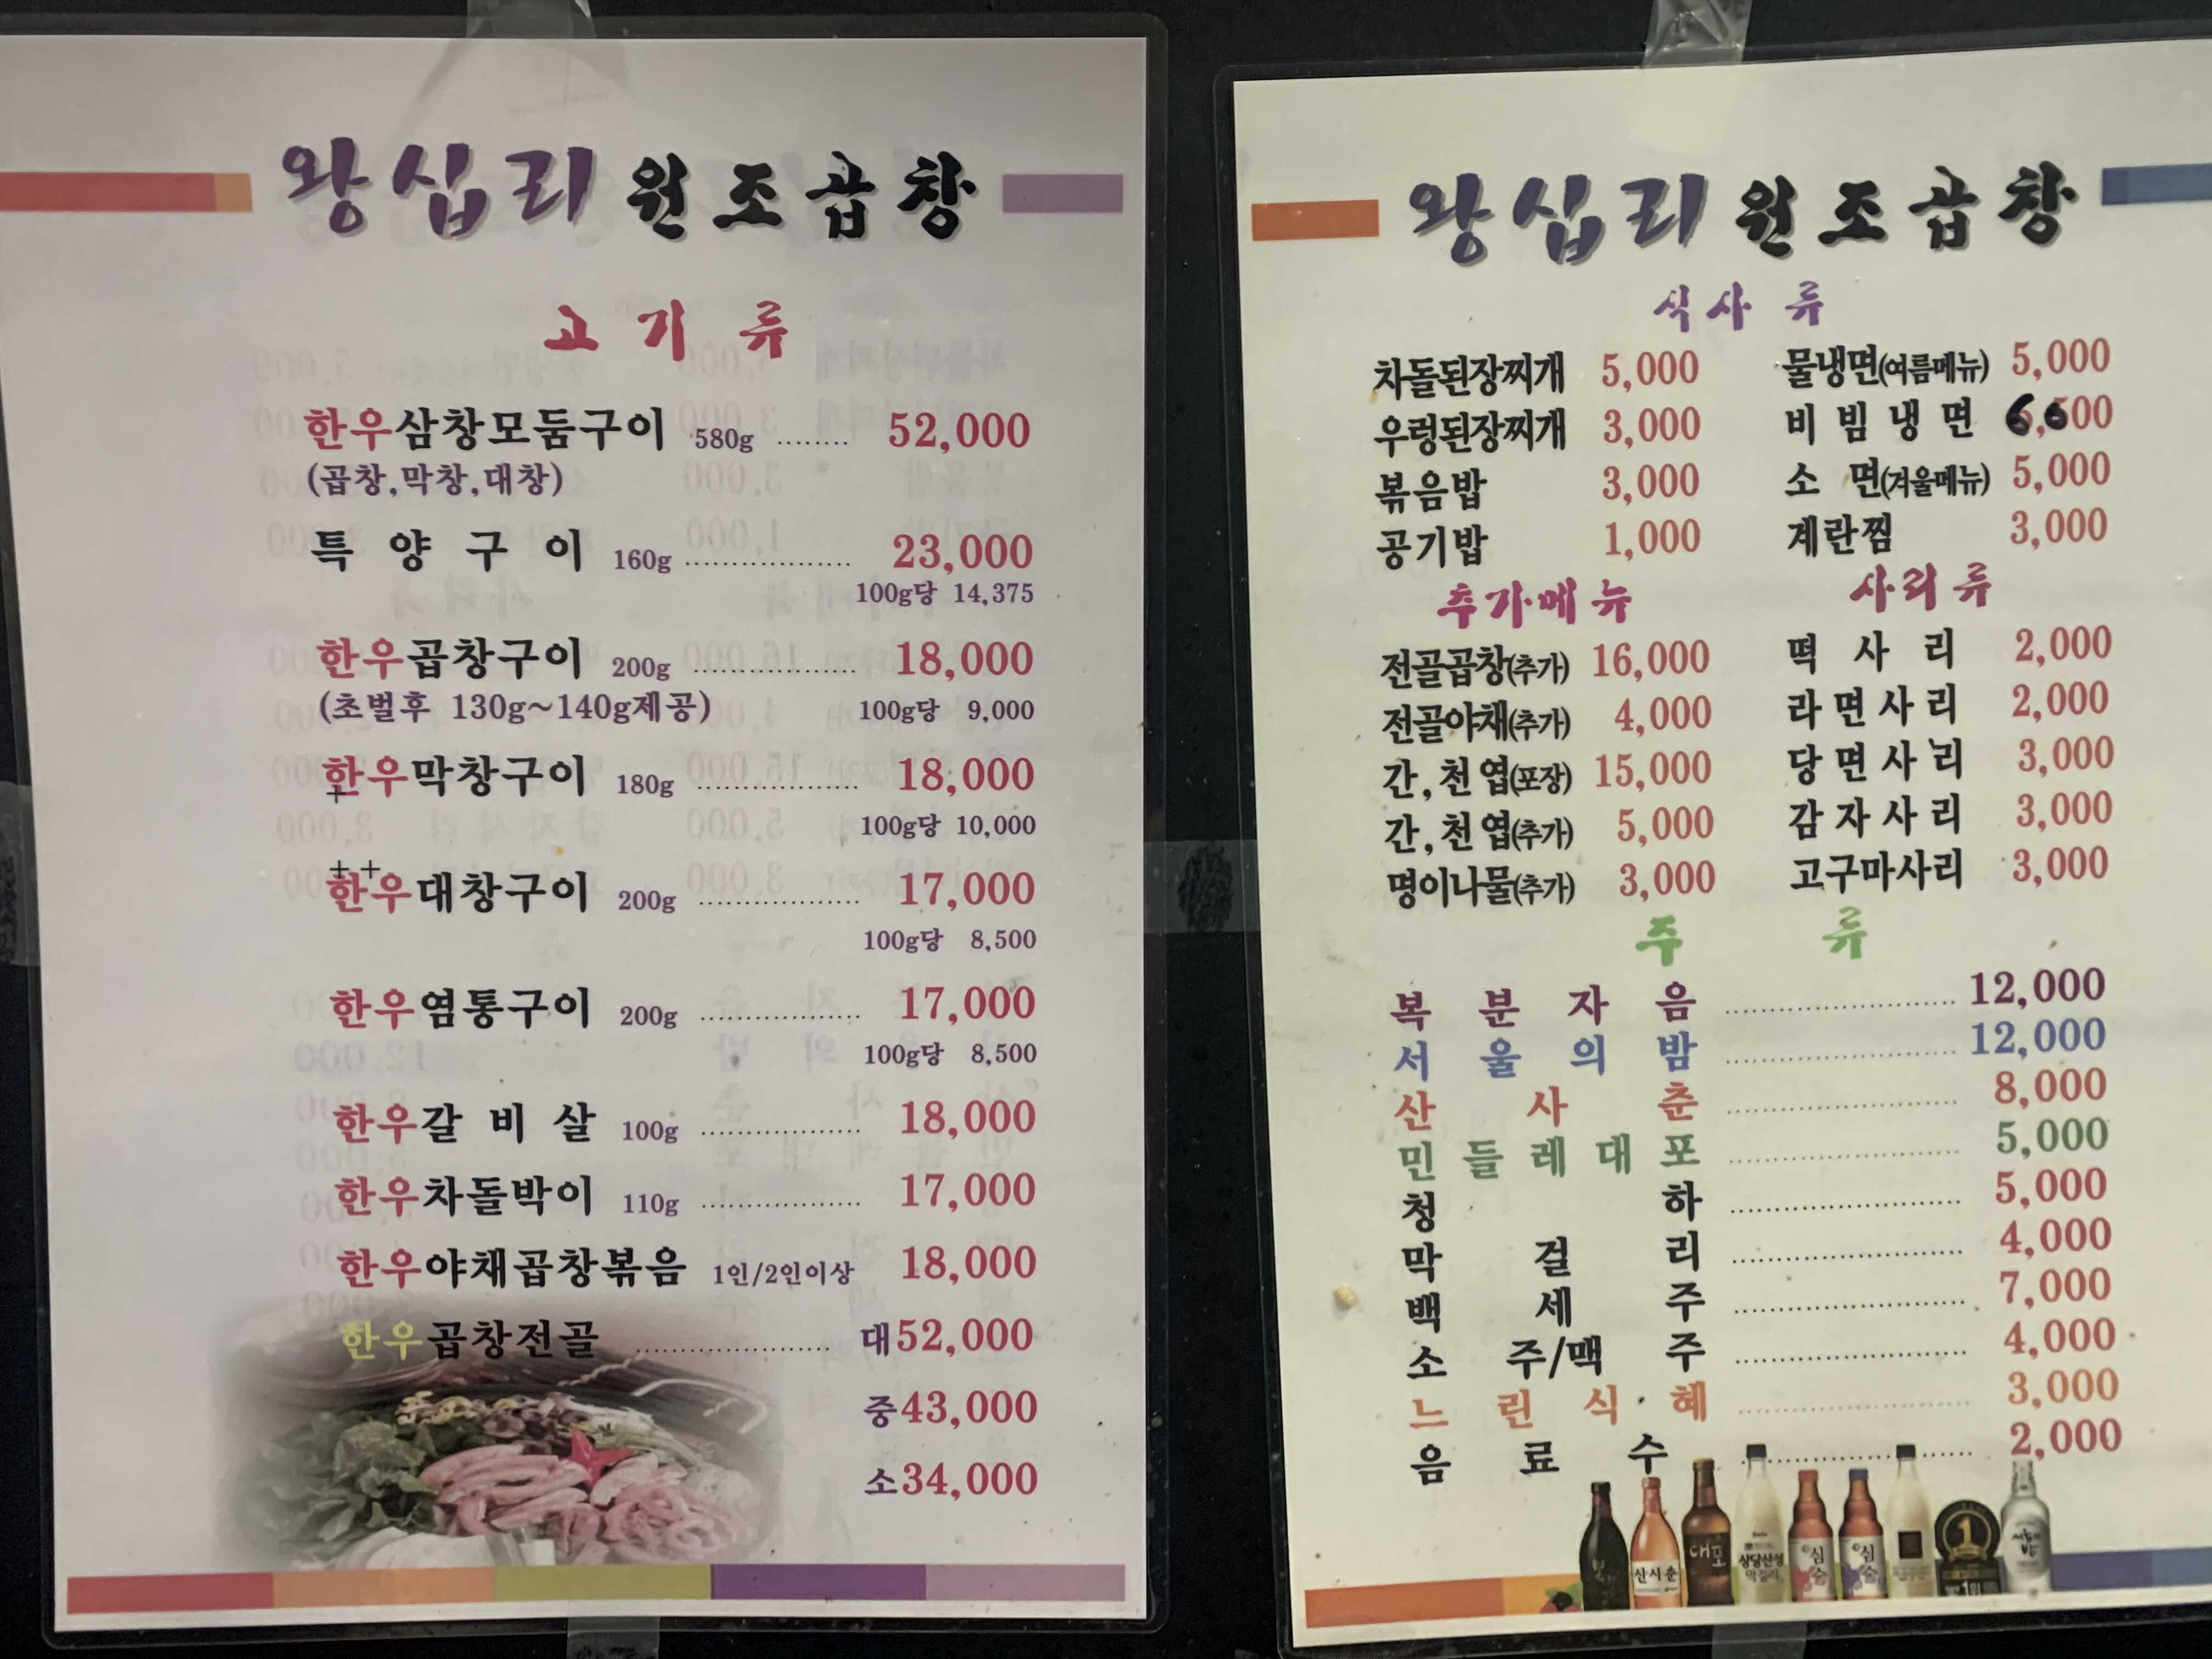 왕십리 원조곱창
고기류
한우삼창모둠구이 580g ........ 52,000
(곱창,막창,대창)
특양구이 160g .................. 23,000
100g당 14,375
한우곱창구이 200g .................. 18,000
(초벌후 130g~140g제공) 100g당 9,000
한우막창구이 180g .................. 18,000
+
100g당 10,000
++
한우대창구이 200g .................. 17,000
100g당 8,500
한우염통구이 200g .................. 17,000
100g당 8,500
한우갈비살 100g .................. 18,000
한우차돌박이 110g .................. 17,000
한우야채곱창볶음 1인/2인이상 18,000
한우곱창전골 ...................... 대52,000
중43,000
소34,000
왕십리 원조곱창
식사류
차돌된장찌개 5,000 물냉면(여름메뉴) 5,000
우렁된장찌개 3,000 비빔냉면 6,000
볶음밥 3,000 소면(겨울메뉴) 5,000
공기밥 1,000 계란찜 3,000
추가메뉴 사리류
전골곱창(추가) 16,000 떡사리 2,000
전골야채(추가) 4,000 라면사리 2,000
간,천엽(포장) 15,000 당면사리 3,000
간,천엽(추가) 5,000 감자사리 3,000
명이나물(추가) 3,000 고구마사리 3,000
주류
복분자음 .......................... 12,000
서울의밤 .......................... 12,000
산사춘 .......................... 8,000
민들레대포 .......................... 5,000
청하 .......................... 5,000
막걸리 .......................... 4,000
백세주 .......................... 7,000
소주/맥주 .......................... 4,000
느린식혜 .......................... 3,000
음료수 .......................... 2,000
산사춘 대포 심술 심술 1 서울의밤